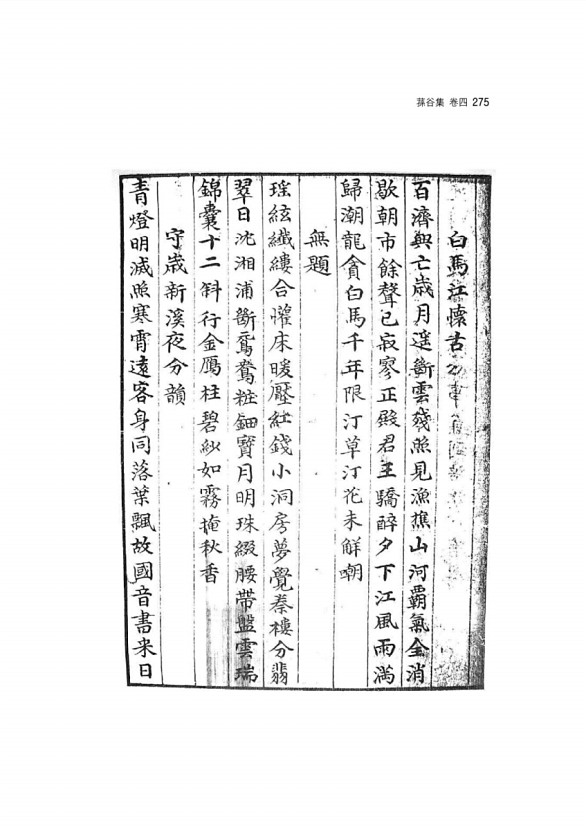 蓀谷集 卷四 275
白馬江懷古
百濟興亡歲月遥斷雲殘照見漁樵山河覇氣全消
歇朝市餘聲已寂寥正殿君王驕醉夕下江風雨滿
歸潮龍貪白馬千年限汀草汀花未觧嘲
無題
瑶絃纎縷合懽床暖壓紅錢小洞房夢覺秦樓分翡
翠日沈湘浦斷鴛鴦粧鈿寳月明珠綴腰帶盤雲瑞
錦囊十二斜行金鴈柱碧紗如霧掩秋香
守歲新溪夜分韻
青燈明滅照寒宵遠客身同落葉飄故國音書来日